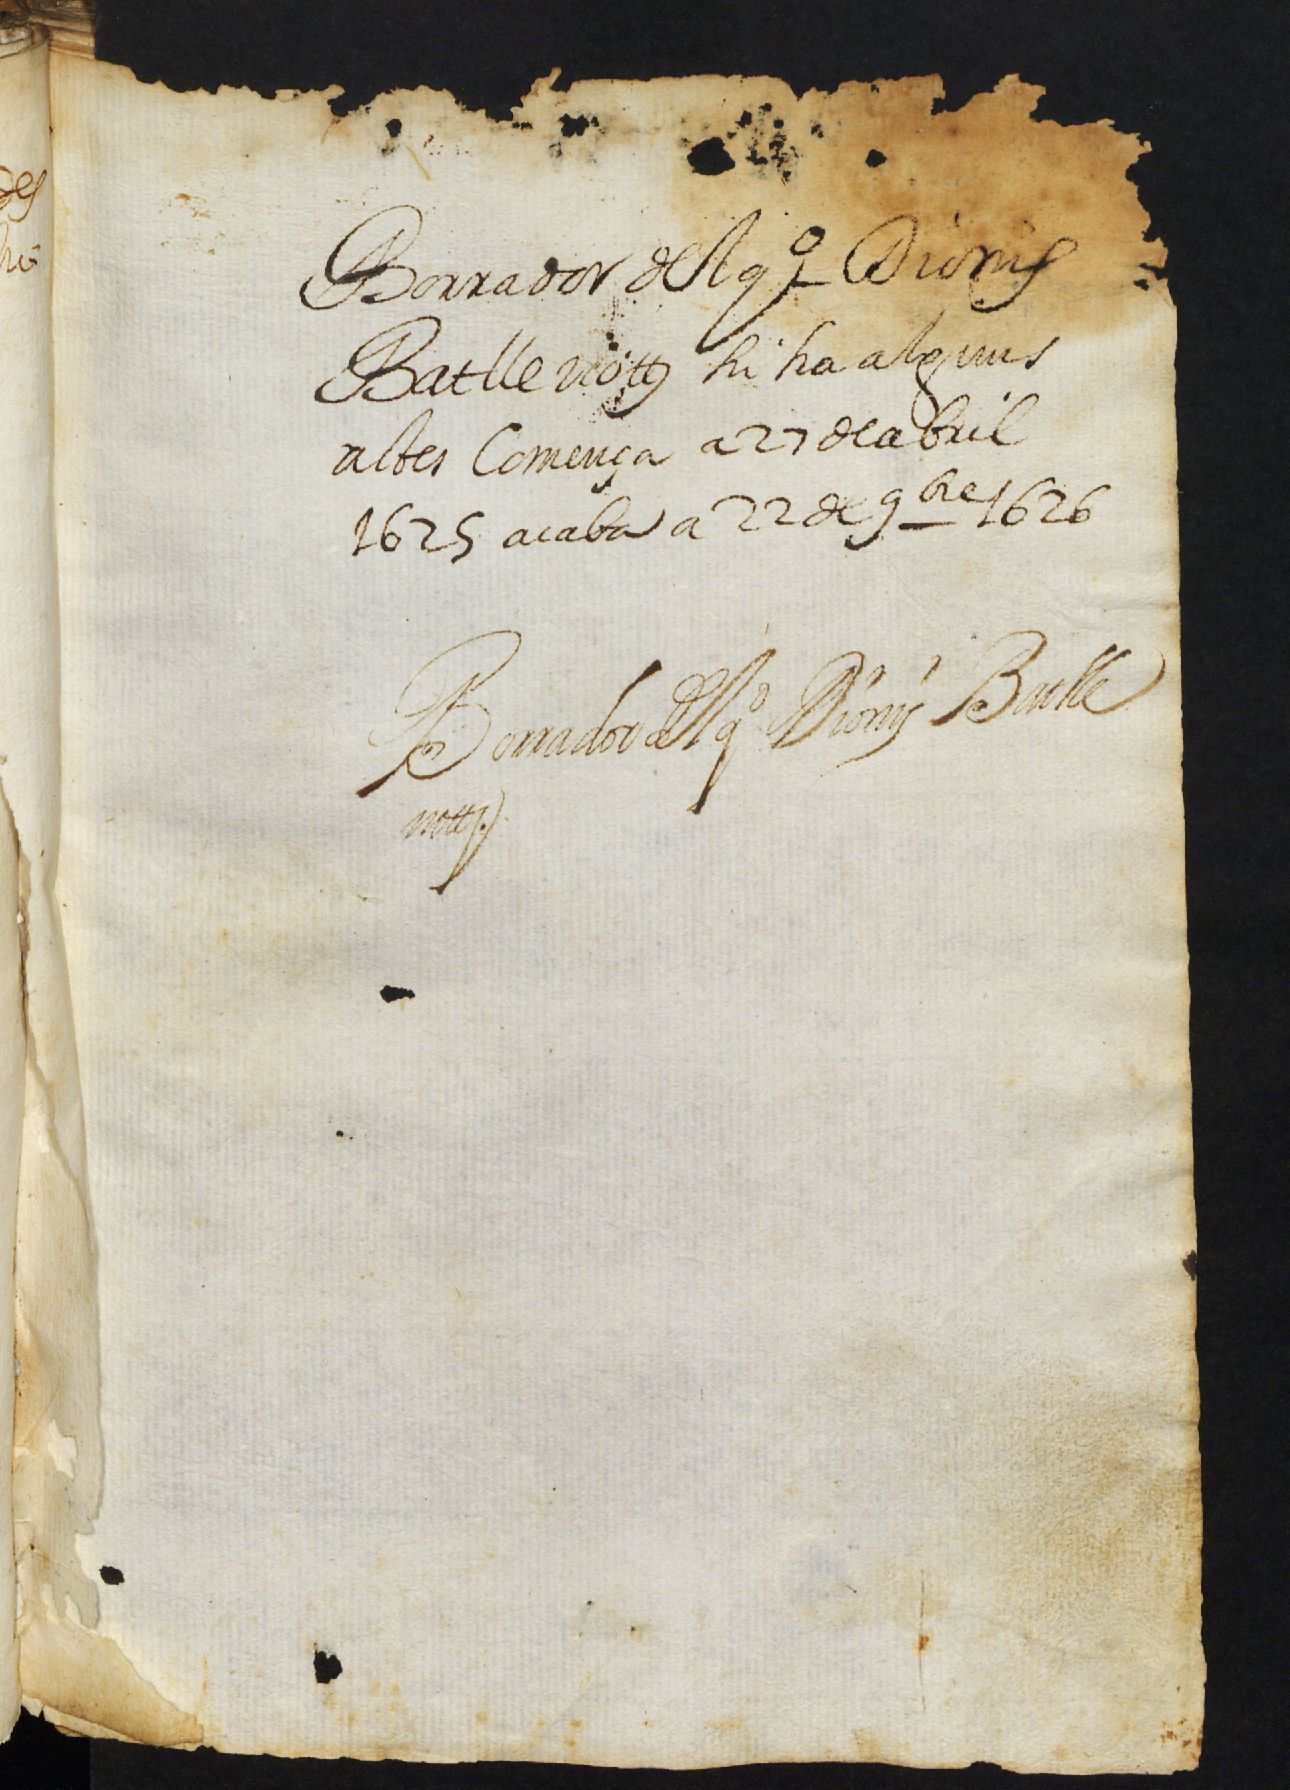 Borrador del q.º Dionis
Batlle nott hi ha alguns
altes Comença a 27 de abril
1625 acaba a 22 de 9bre 1626
Borrador del q.º Dionis Batlle
nott.